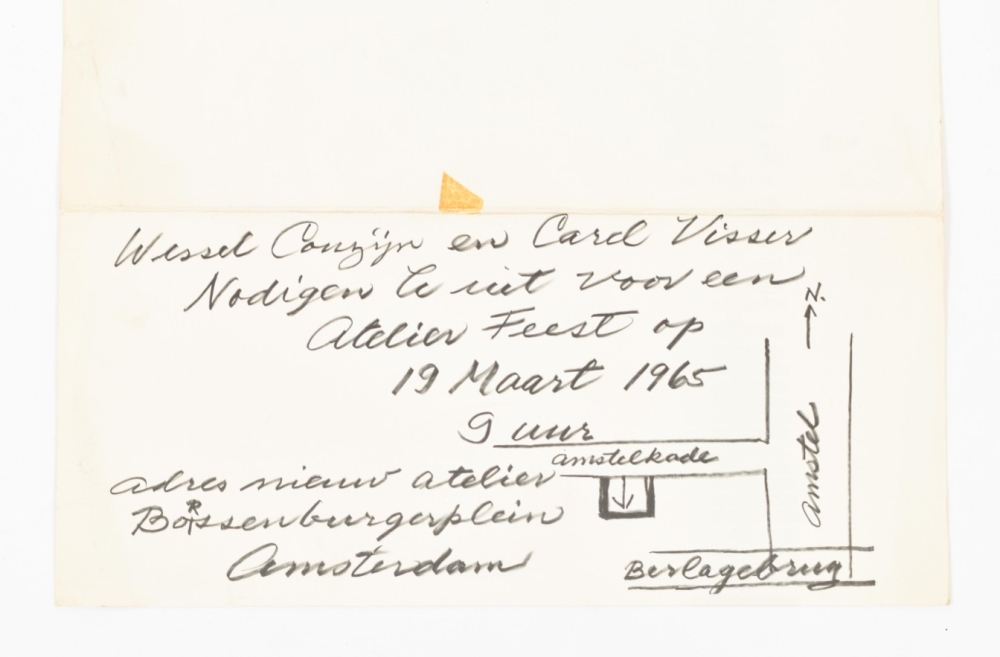 Wessel Couzijn en Carel Visser
Nodigen U uit voor een
Atelier Feest op
19 Maart 1965
9 uur
adres nieuw atelier
Borssenburgerplein
Amsterdam
amstelkade
N.
amstel
Berlagebrug